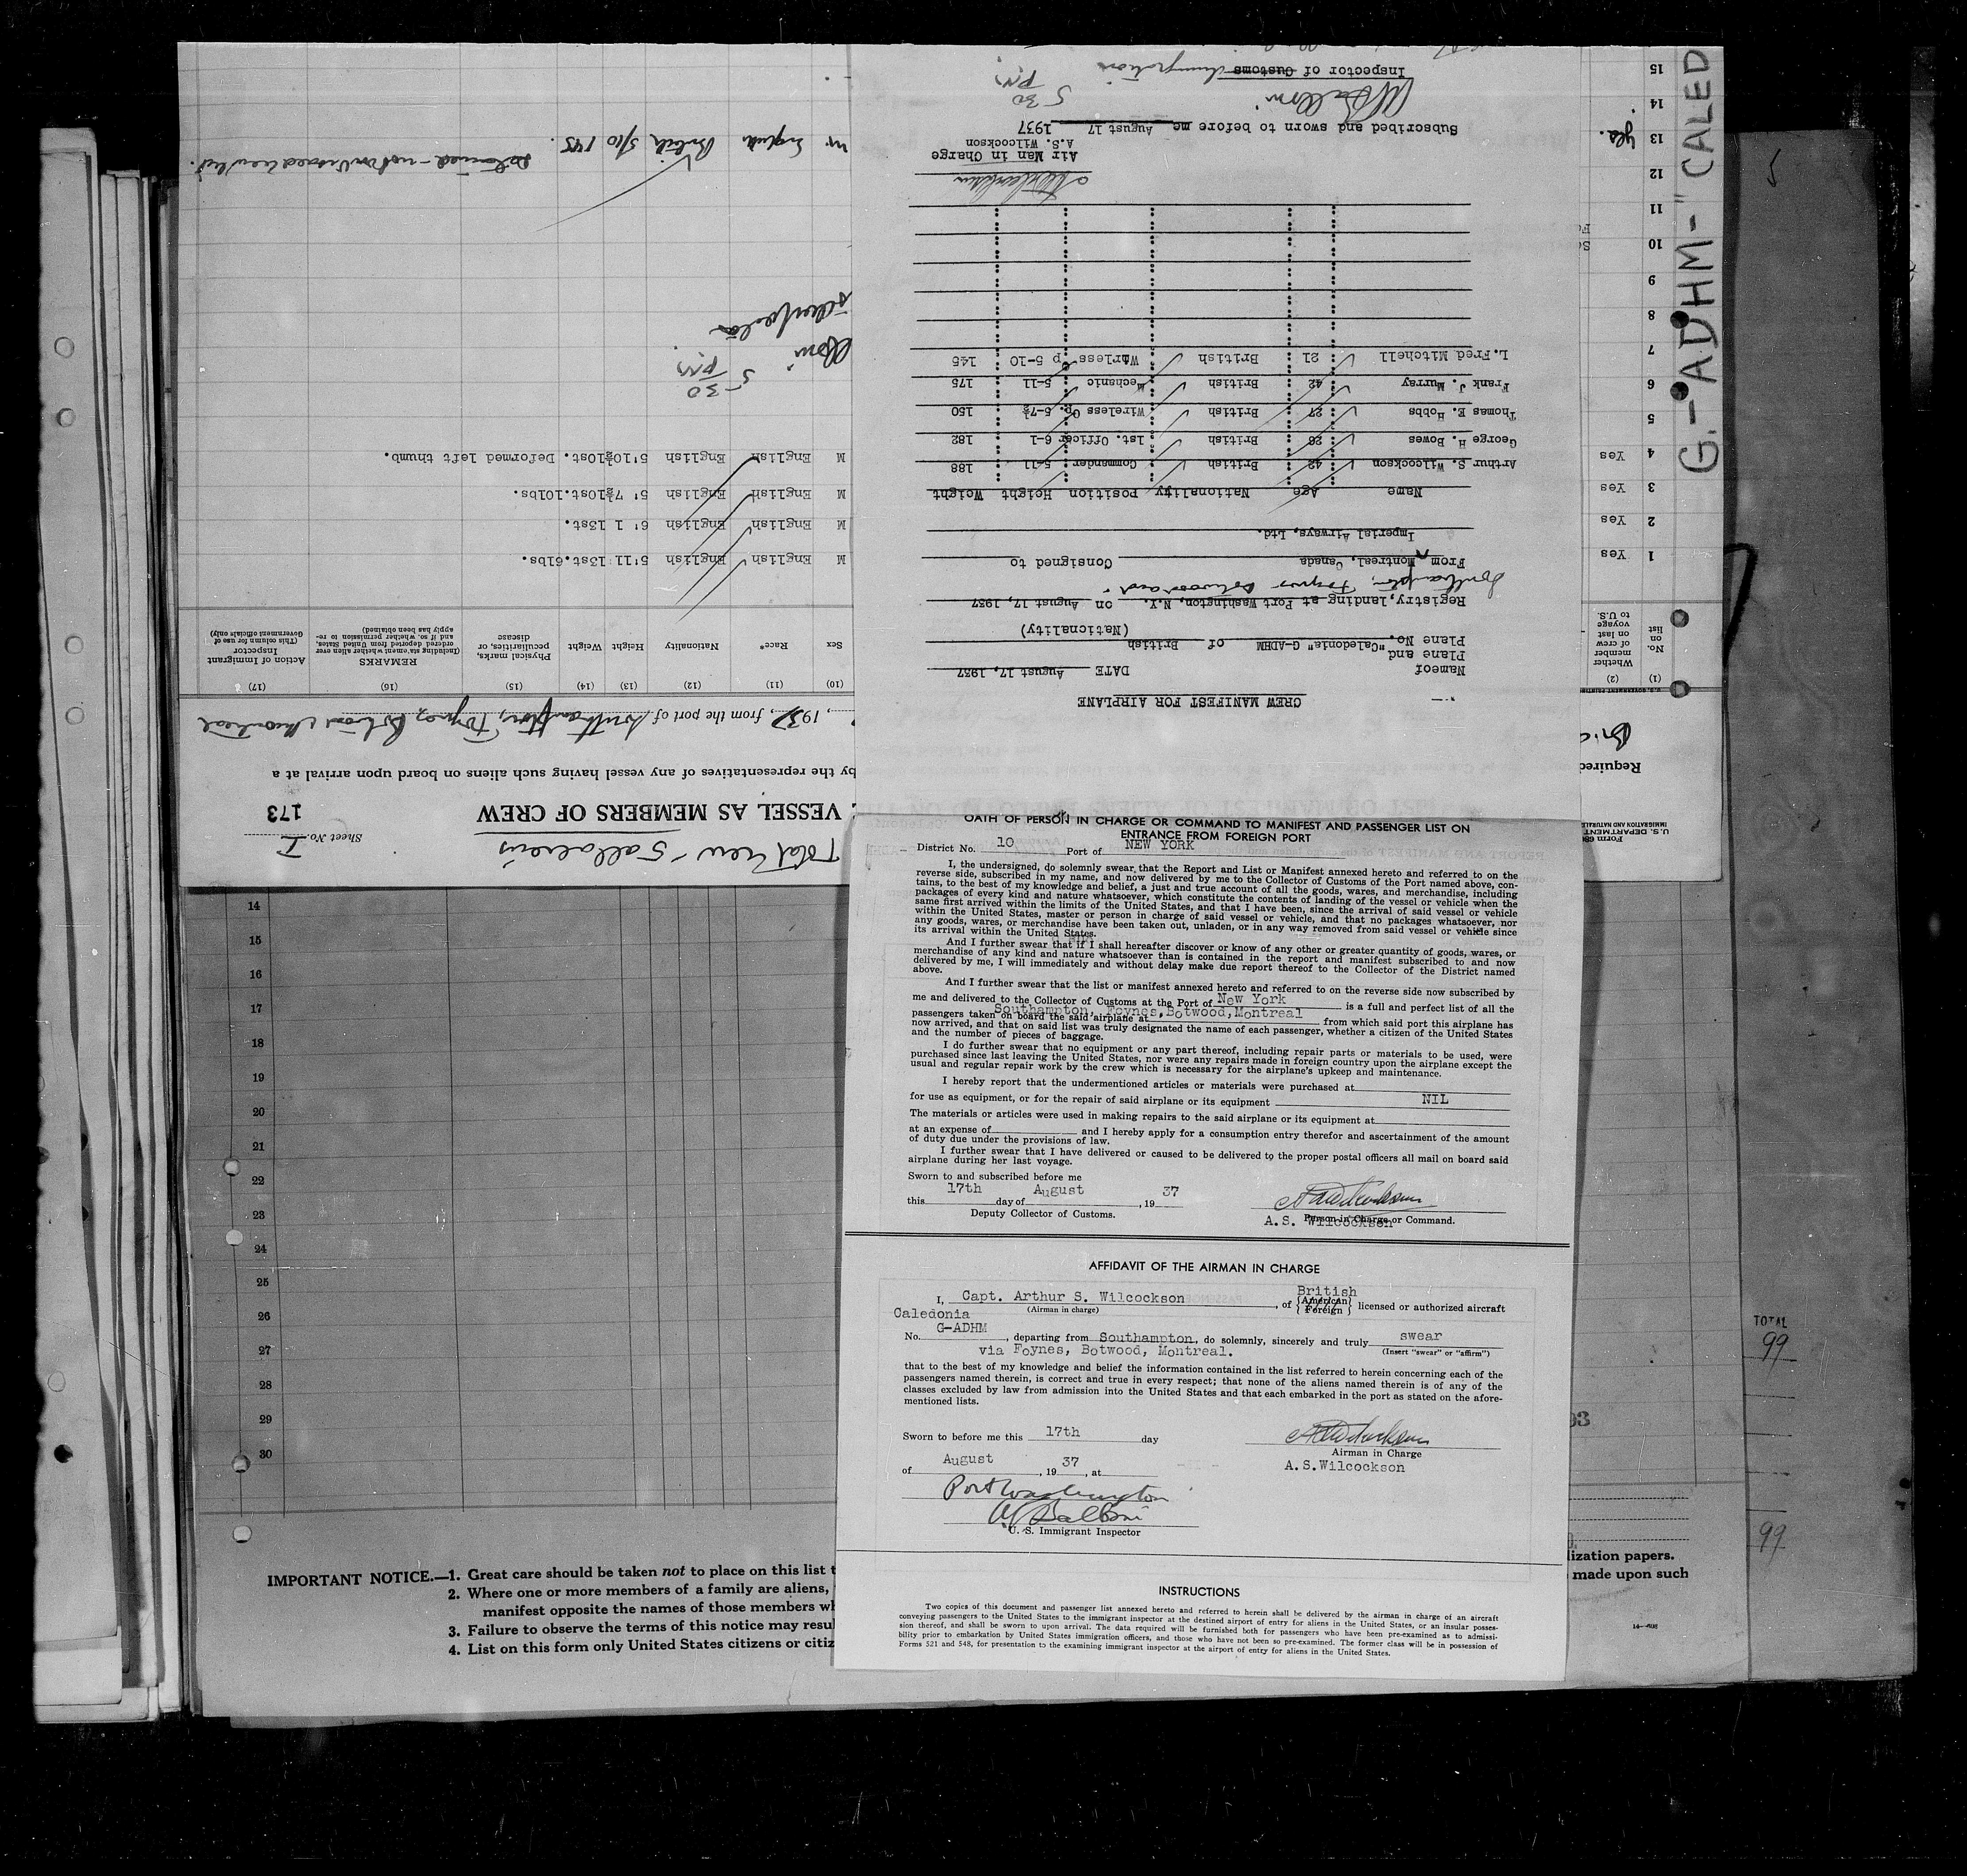 G.-ADHM-"CALED
U. S. DEPARTMENT
IMMIGRATION AND NATURALI
Required
VESSEL AS MEMBERS OF CREW
Total crew - 5 all aliens
Sheet No. I
173
by the representatives of any vessel having such aliens on board upon arrival at a
, 1937, from the port of Southampton, Foynes, Botwood & Montreal
(1) (2)
No. on list
Whether member of crew on last voyage to U.S.
(10) (11) (12) (13) (14) (15) (16) (17)
Sex
Race*
Nationality
Height
Weight
Physical marks, peculiarities, or disease
REMARKS
(Including statement whether alien ever ordered deported from United States, and if so, whether permission to reapply has been obtained)
Action of Immigrant Inspector
(This column for use of Government officials only)
1 Yes M English English 5' 11 13st.6lbs.
2 Yes M English English 6' 1 13st.
3 Yes M English English 5' 7½ 10st.10lbs.
4 Yes M English English 5'10½ 10st. Deformed left thumb.
5
6
7
8
9
10
11
12
13 Yes m. English British 5/10 145.
14
15
5 30
PM
CREW MANIFEST FOR AIRPLANE
DATE August 17, 1937
Nameof
Plane and
Plane No. "Caledonia" G-ADHM of British
(Nationality)
Registry, landing at Port Washington, N.Y. on August 17, 1937
Southampton, Foynes Botwood and
From Montreal, Canada Consigned to
Imperial Airways, Ltd.
Name Age Nationality Position Height Weight
Arthur S. Wilcockson 42 British Commander 5-11 188
George H. Bowes 26 British 1st. Officer 6-1 182
Thomas E. Hobbs 27 British Wireless Op. 5-7½ 150
Frank J. Murray 42 British Mechanic 5-11 175
L.Fred Mitchell 21 British Wirless O p 5-10 145
Air Man in Charge
A.S. Wilcockson
Subscribed and sworn to before me August 17 1937
5 30
PM
Inspector of Customs Immigration
OATH OF PERSON IN CHARGE OR COMMAND TO MANIFEST AND PASSENGER LIST ON
ENTRANCE FROM FOREIGN PORT
District No. 10 Port of NEW YORK
I, the undersigned, do solemnly swear that the Report and List or Manifest annexed hereto and referred to on the
reverse side, subscribed in my name, and now delivered by me to the Collector of Customs of the Port named above, con-
tains, to the best of my knowledge and belief, a just and true account of all the goods, wares, and merchandise, including
packages of every kind and nature whatsoever, which constitute the contents of landing of the vessel or vehicle when the
same first arrived within the limits of the United States, and that I have been, since the arrival of said vessel or vehicle
within the United States, master or person in charge of said vessel or vehicle, and that no packages whatsoever, nor
any goods, wares, or merchandise have been taken out, unladen, or in any way removed from said vessel or vehicle since
its arrival within the United States.
And I further swear that if I shall hereafter discover or know of any other or greater quantity of goods, wares, or
merchandise of any kind and nature whatsoever than is contained in the report and manifest subscribed to and now
delivered by me, I will immediately and without delay make due report thereof to the Collector of the District named
above.
And I further swear that the list or manifest annexed hereto and referred to on the reverse side now subscribed by
me and delivered to the Collector of Customs at the Port of New York is a full and perfect list of all the
passengers taken on board the said airplane at Southampton, Foynes,Botwood,Montreal from which said port this airplane has
now arrived, and that on said list was truly designated the name of each passenger, whether a citizen of the United States
and the number of pieces of baggage.
I do further swear that no equipment or any part thereof, including repair parts or materials to be used, were
purchased since last leaving the United States, nor were any repairs made in foreign country upon the airplane except the
usual and regular repair work by the crew which is necessary for the airplane's upkeep and maintenance.
I hereby report that the undermentioned articles or materials were purchased at
for use as equipment, or for the repair of said airplane or its equipment NIL
The materials or articles were used in making repairs to the said airplane or its equipment at
at an expense of and I hereby apply for a consumption entry therefor and ascertainment of the amount
of duty due under the provisions of law.
I further swear that I have delivered or caused to be delivered to the proper postal officers all mail on board said
airplane during her last voyage.
Sworn to and subscribed before me
this 17th day of August , 19 37
Deputy Collector of Customs.
Person in Charge or Command.
A.S. Wilcockson
AFFIDAVIT OF THE AIRMAN IN CHARGE
British
I, Capt. Arthur S. Wilcockson , of {American Foreign} licensed or authorized aircraft
(Airman in charge)
Caledonia
No. G-ADHM , departing from Southampton, do solemnly, sincerely and truly swear
via Foynes, Botwood, Montreal. (Insert "swear" or "affirm")
that to the best of my knowledge and belief the information contained in the list referred to herein concerning each of the
passengers named therein, is correct and true in every respect; that none of the aliens named therein is of any of the
classes excluded by law from admission into the United States and that each embarked in the port as stated on the afore-
mentioned lists.
Sworn to before me this 17th day
Airman in Charge
of August , 19 37 , at
A.S.Wilcockson
Port Washington
U. S. Immigrant Inspector
INSTRUCTIONS
Two copies of this document and passenger list annexed hereto and referred to herein shall be delivered by the airman in charge of an aircraft
conveying passengers to the United States to the immigrant inspector at the destined airport of entry for aliens in the United States, or an insular posses-
sion thereof, and shall be sworn to upon arrival. The data required will be furnished both for passengers who have been pre-examined as to admissi-
bility prior to embarkation by United States immigration officers, and those who have not been so pre-examined. The former class will be in possession of
Forms 521 and 548, for presentation to the examining immigrant inspector at the airport of entry for aliens in the United States.
14
15
16
17
18
19
20
21
22
23
24
25
26
27
28
29
30
IMPORTANT NOTICE.—1. Great care should be taken not to place on this list
2. Where one or more members of a family are aliens,
manifest opposite the names of those members
3. Failure to observe the terms of this notice may
4. List on this form only United States citizens or
lization papers.
made upon such
TOTAL
99
99